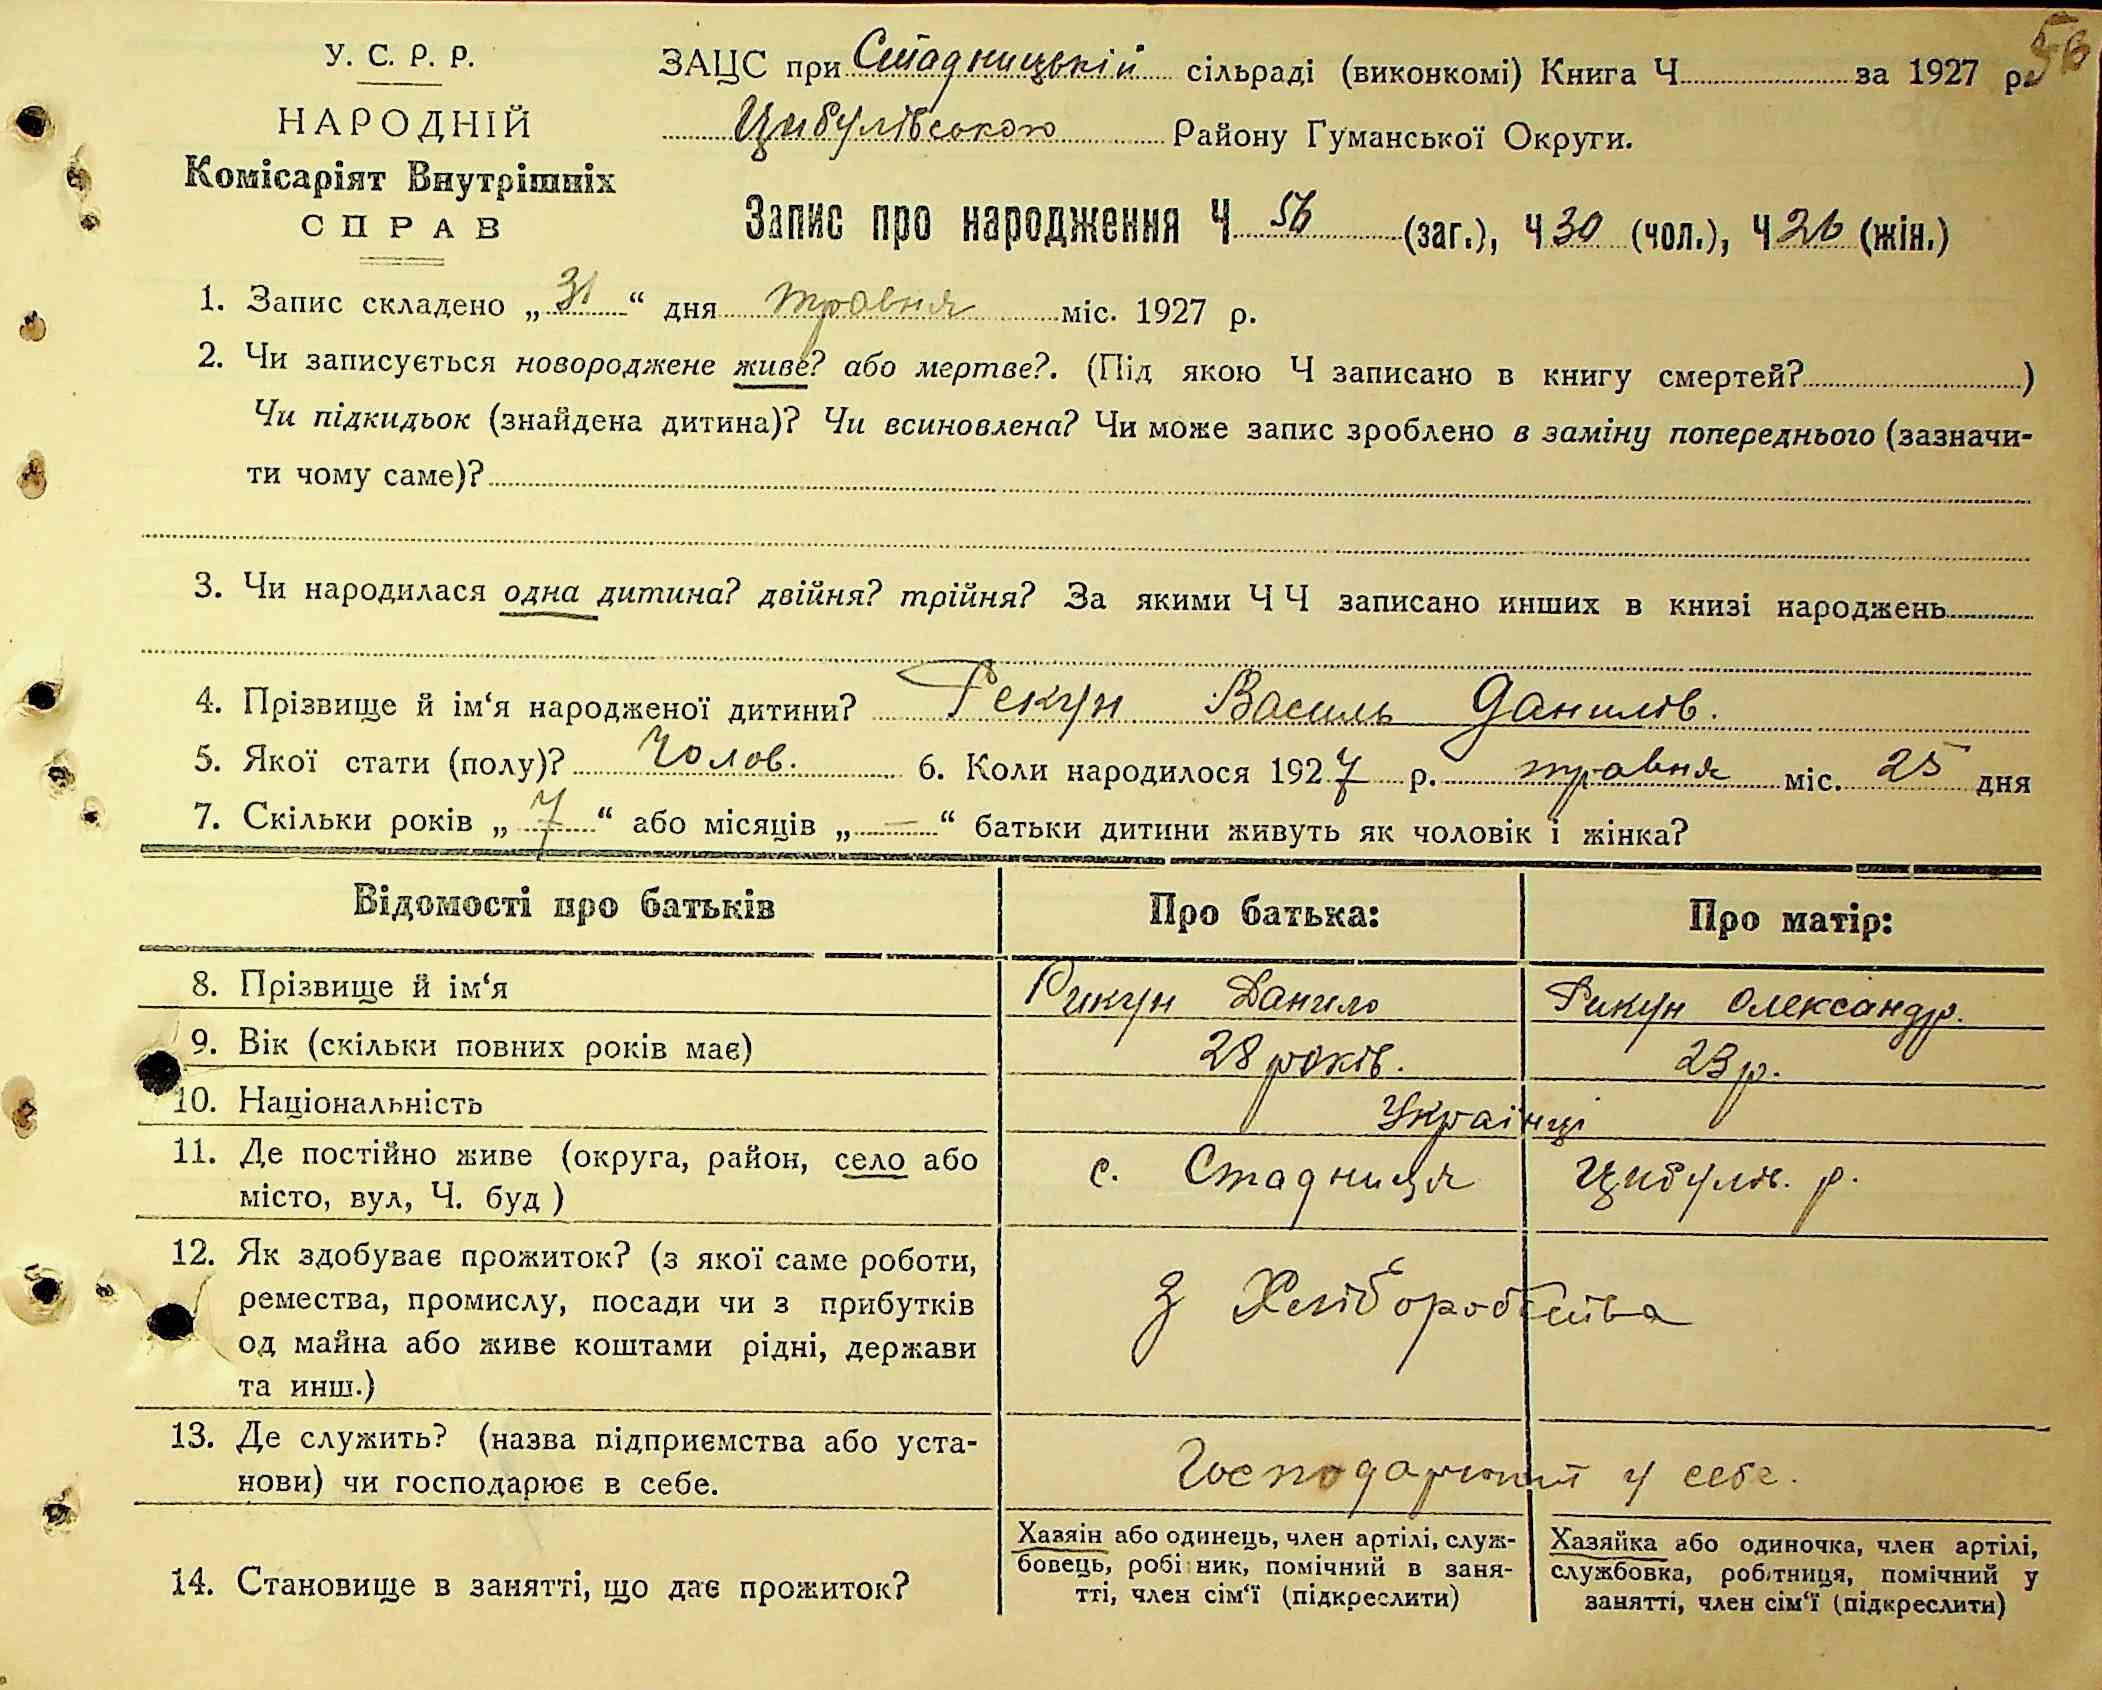 56
У. С. Р. Р.
НАРОДНІЙ
Комісаріят Внутрішніх
СПРАВ
ЗАЦС при Стадницькій сільраді (виконкомі) Книга Ч. за 1927 р.
Цибулівського Району Гуманської Округи.
Запис про народження Ч 56 (заг.), Ч 30 (чол.), Ч 26 (жін.)
1. Запис складено „31“ дня травня міс. 1927 р.
2. Чи записується новороджене живе? або мертве?. (Під якою Ч записано в книгу смертей? )
Чи підкидьок (знайдена дитина)? Чи всиновлена? Чи може запис зроблено в заміну попереднього (зазначи-
ти чому саме)?
3. Чи народилася одна дитина? двійня? трійня? За якими ЧЧ записано инших в книзі народжень
4. Прізвище й ім‘я народженої дитини? Рекун Василь Данилів.
5. Якої стати (полу)? Чолов. 6. Коли народилося 1927 р. травня міс. 25 дня
7. Скільки років „7“ або місяців „—“ батьки дитини живуть як чоловік і жінка?
Відомості про батьків Про батька: Про матір:
8. Прізвище й ім‘я Рикун Данило Рикун Олександр.
9. Вік (скільки повних років має) 28 років. 23 р.
10. Національність Українці
11. Де постійно живе (округа, район, село або с. Стадниця Цибулів. р.
місто, вул, Ч. буд )
12. Як здобуває прожиток? (з якої саме роботи,
ремества, промислу, посади чи з прибутків З Хліборобства
од майна або живе коштами рідні, держави
та инш.)
13. Де служить? (назва підприємства або уста-
нови) чи господарює в себе. Господарюют у себе.
14. Становище в занятті, що дає прожиток?
Хазяін або одинець, член артілі, служ-
бовець, робі ник, помічний в заня-
тті, член сім‘ї (підкреслити)
Хазяйка або одиночка, член артілі,
службовка, робітниця, помічний у
занятті, член сім‘ї (підкреслити)